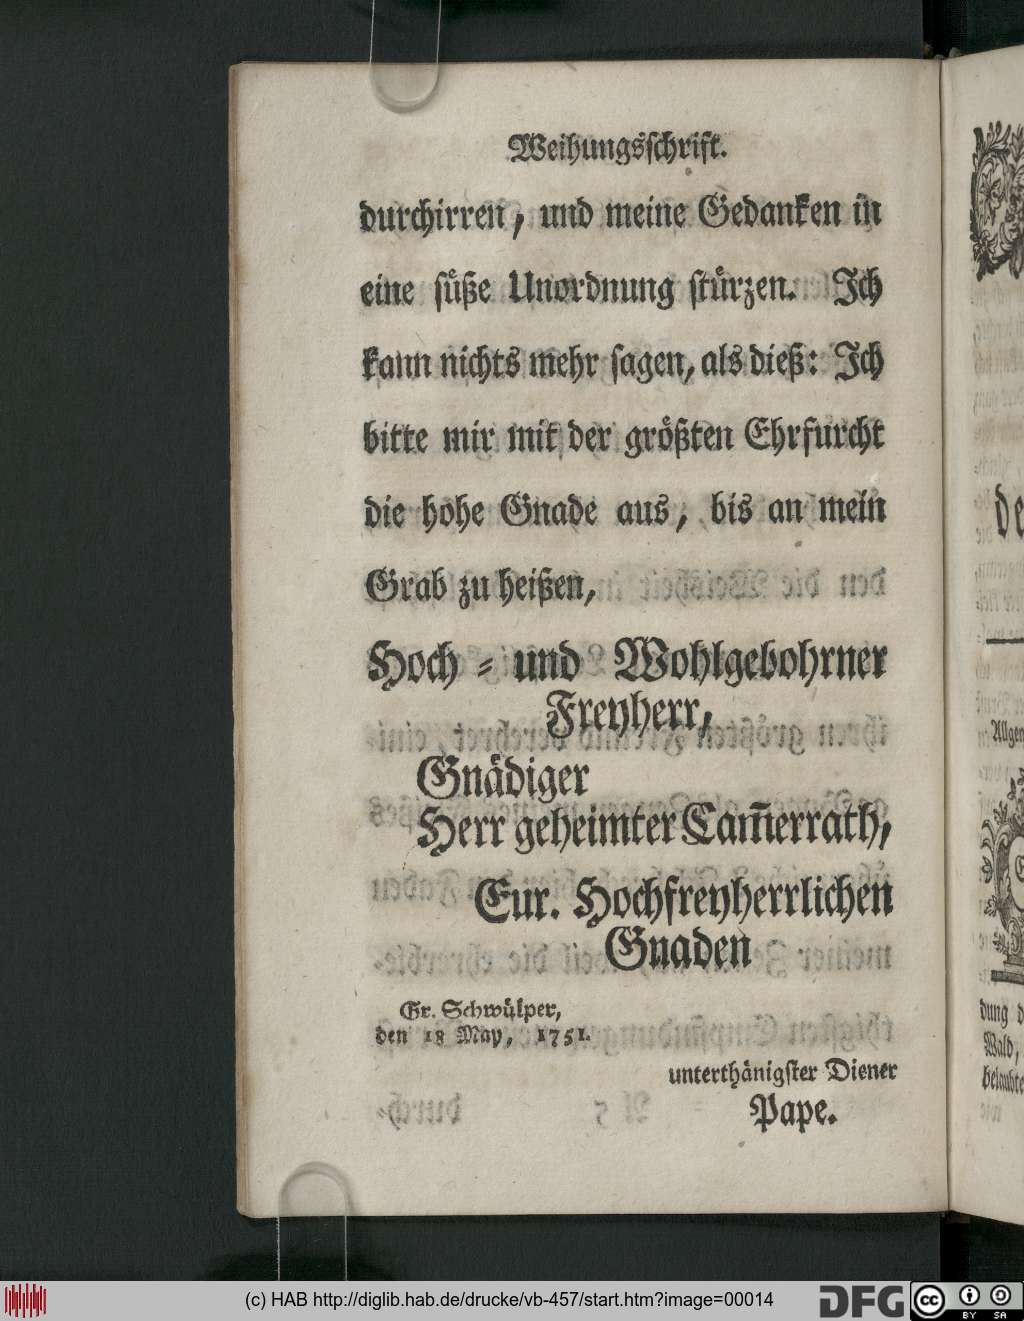 Weihungsschrift.
durchirren, und meine Gedanken in
eine süße Unordnung stürzen. Ich
kann nichts mehr sagen, als dieß: Ich
bitte mir mit der größten Ehrfurcht
die hohe Gnade aus, bis an mein
Grab zu heißen,
Hoch = und Wohlgebohrner
Freyherr,
Gnädiger
Herr geheimter Cam̅errath,
Eur. Hochfreyherrlichen
Gnaden
Gr. Schwülper,
den 18 May, 1751.
unterthänigster Diener
Pape.
de
Allgem
dung d
Wald,
belaubte
(c) HAB http://diglib.hab.de/drucke/vb-457/start.htm?image=00014
DFG
cc BY SA